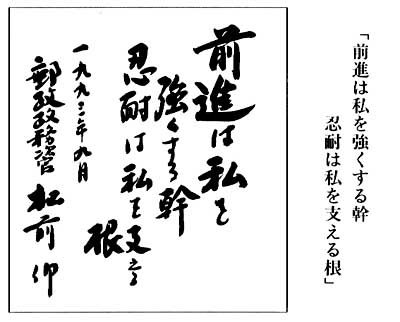 「前進は私を強くする幹
忍耐は私を支える根」
前進は私を
強くする幹
忍耐は私を支える
根
一九九二年九月
郵政政務次官 松前仰